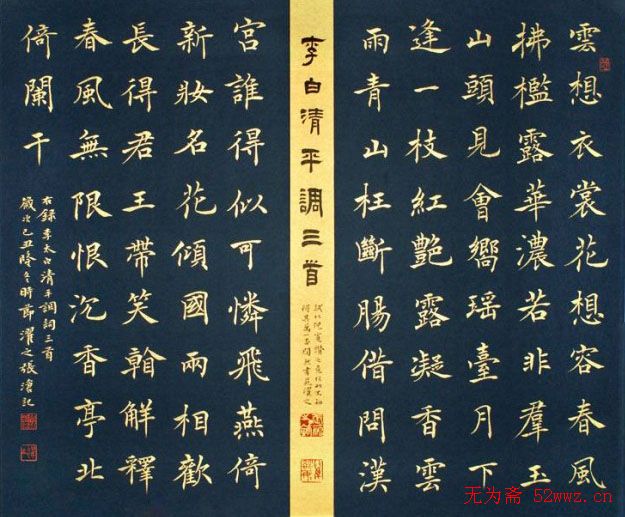 雲想衣裳花想容春風
拂檻露華濃若非羣玉
山頭見會嚮瑤臺月下
逢一枝紅艷露凝香雲
雨青山枉斷腸借問漢
李白清平調三首
宮誰得似可憐飛燕倚
新妝名花傾國兩相歡
長得君王帶笑翰解釋
春風無限恨沉香亭北
倚闌干
右錄李太白清平調詞三首
歲次己丑隆冬時節濯之張記
无为斋 52wwz.cn